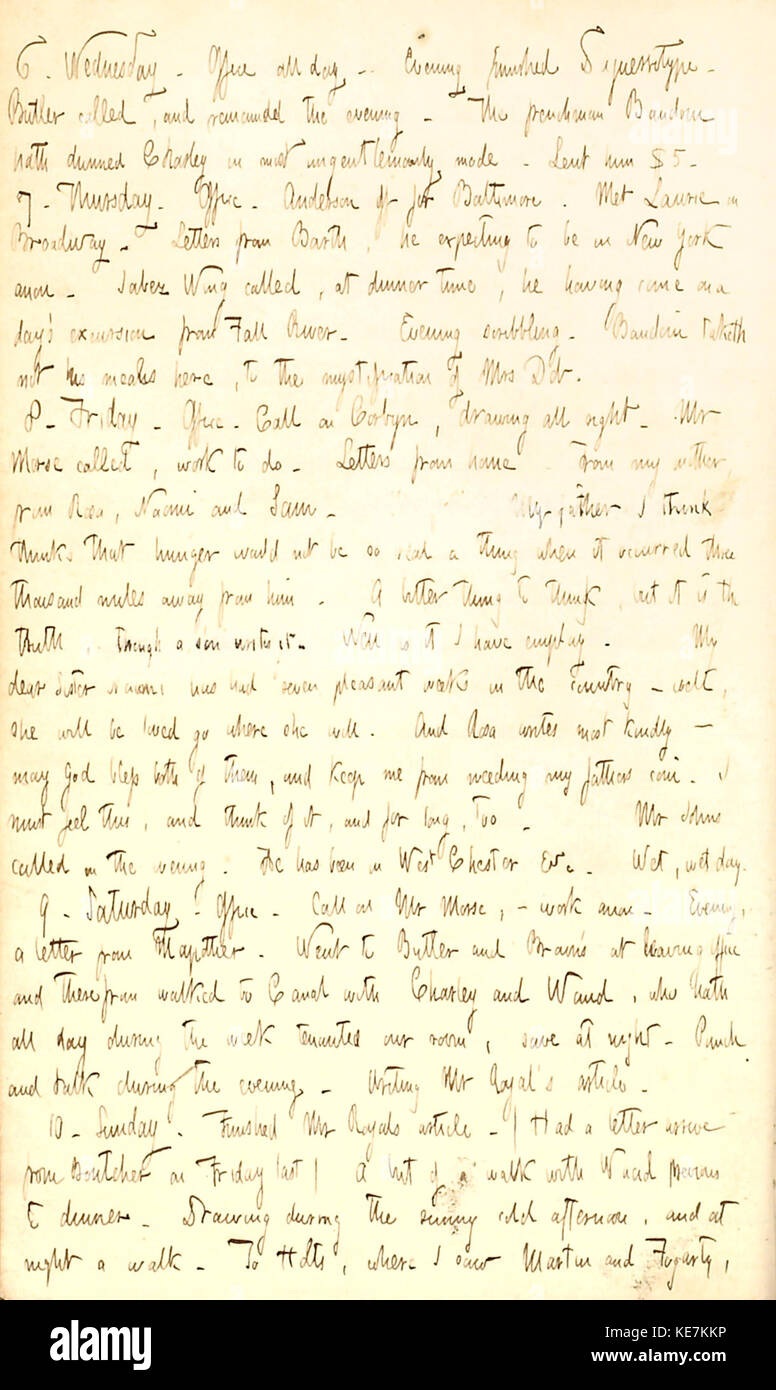 6. Wednesday. Office all day. Evening finished Daguerrotype.
Butler called, and remained the evening. The frenchman Baudoin
hath dunned Charley in most ungentlemanly mode. Lent him $5.
7. Thursday. Office. Anderson off for Baltimore. Met Laurie in
Broadway. Letters from Barth, he expecting to be in New York
anon. Jabez Wing called, at dinner time, he having come on a
day's excursion from Fall River. Evening scribbling. Baudoin taketh
not his meals here, to the mystification of Mrs
8. Friday. Office. Call on Corbyn, drawing all right. Mr
Morse called, work to do. Letters from home From my mother
from Rosa, Naomi and Sam. My father I think
thinks that hunger would not be so real a thing when it occurred three
thousand miles away from him. A bitter thing to think, but it is the
truth, though a son writes it. Well is it I have employ. My
dear Sister Naomi has had seven pleasant weeks in the country – well,
she will be loved go where she will. And Rosa writes most kindly –
may God bless both of them, and keep me from needing my fathers coin. I
must feel this, and think of it, and for long, too. Mr Johns
called in the evening. He has been in West Chester &c. Wet, wet day.
9. Saturday. Office. Call on Mr Morse, – work anon. Evening,
a letter from Mapother. Went to Butler and Brain's at leaving office
and therefrom walked to Canal with Charley and Waud, who hath
all day during the week tenanted our room, save at night. Punch
and talk during the evening. Writing Mr Royal's article.
10. Sunday. Finished Mr Royals article. | Had a letter arrive
from Boutcher on Friday last | A bit of a walk with Waud previous
to dinner. Drawing during the sunny cold afternoon, and at
night a walk. To Holts, where I saw Martin and Fogarty,
alamy
Image ID: KE7KKP
www.alamy.com